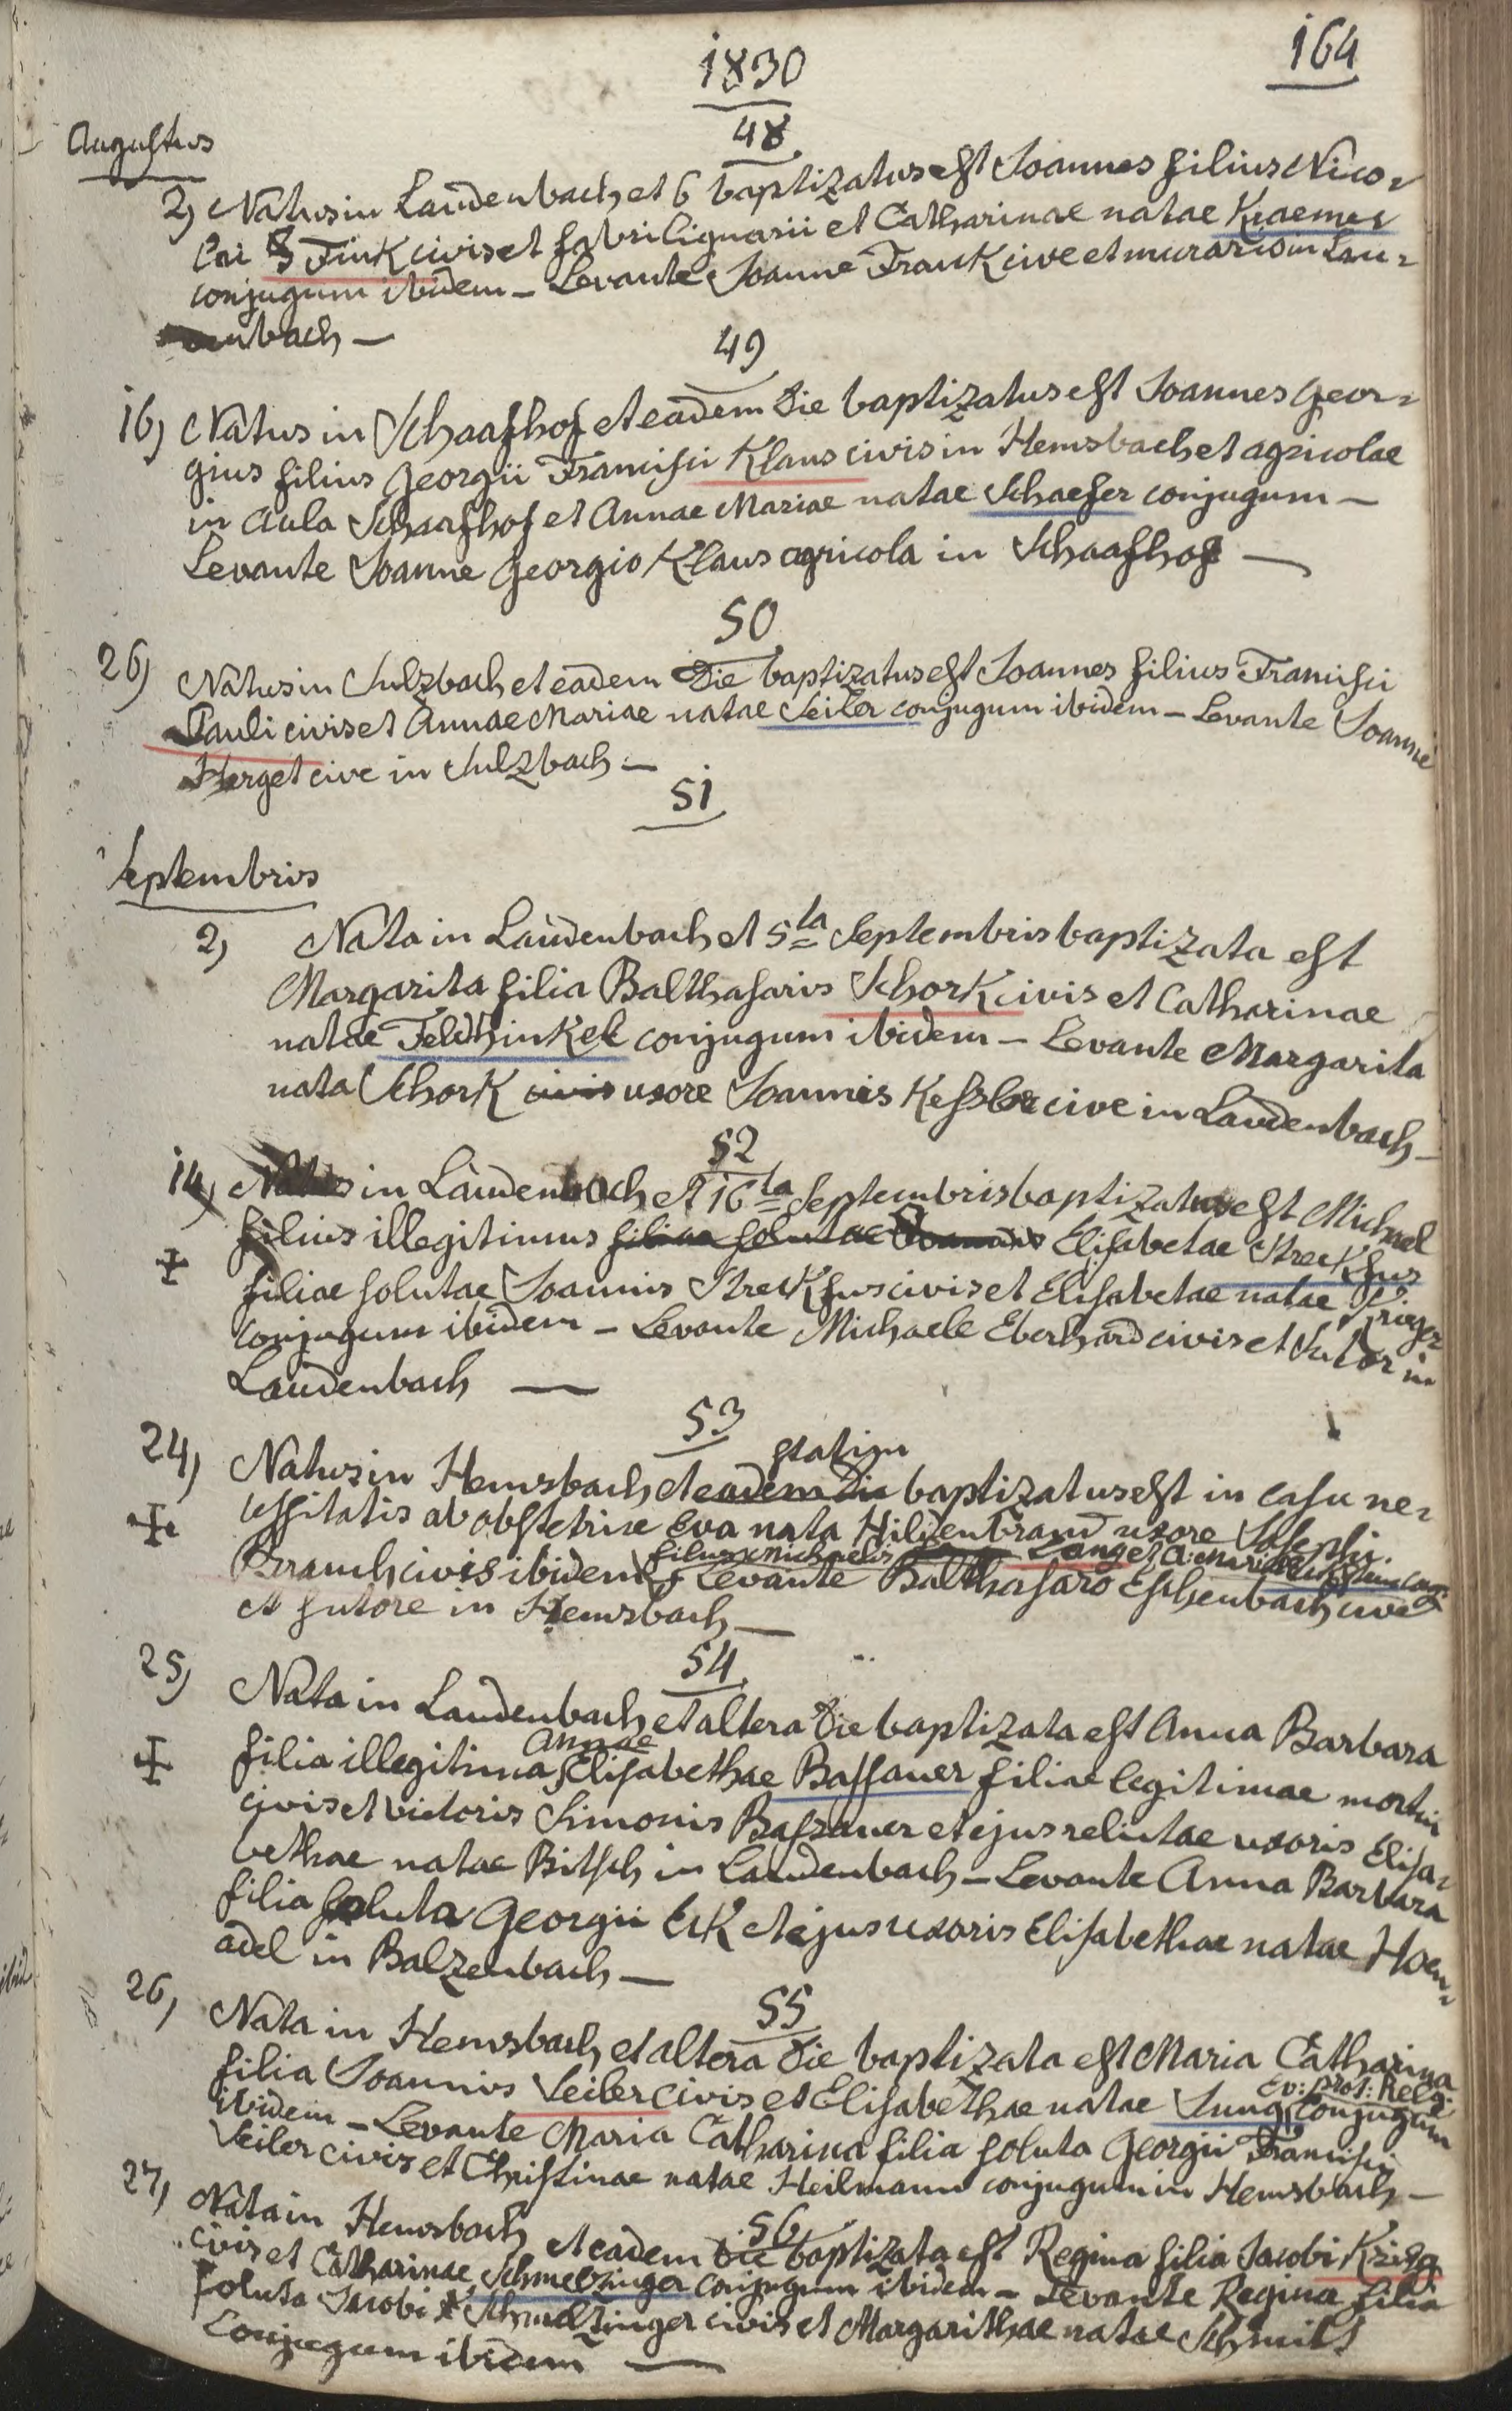 164
1830
48
Augustus
2) Natus in Laudenbach et 6 baptizatus est Joannes filius Nico-
lai Fink civis et fabri lignarii et Catharinae natae Kraemer
conjugum ibidem - Levante Joanne Frank cive et murario in Lau-
enbach -
49
16) Natus in Schaafhof et eadem die baptizatus est Joannes Geor-
gius filius Georgii Francisci Klaus civis in Hemsbach et agricolae
in Aula Schaafhof et Annae Mariae natae Schaefer conjugum -
Levante Joanne Georgio Klaus agricola in Schaafhof -
50
26) Natus in Sulzbach et eadem die baptizatus est Joannes filius Francisci
Pauli civis et Annae Mariae natae Seiler conjugum ibidem - Levante Joanne
Herget cive in Sulzbach -
51
Septembris
2) Nata in Laudenbach et 5ta Septembris baptizata est
Margarita filia Balthasaris Schork civis et Catharinae
natae Feldhinkel conjugum ibidem - Levante Margarita
nata Schork civis uxore Joannis Kessler cive in Laudenbach -
52
14) Natus in Laudenbach et 16ta Septembris baptizatus est Michael
filius illegitimus filiae solutae Joannis Elisabetae Streckfus
filiae solutae Joannis Streckfus civis et Elisabetae natae Krieger
conjugum ibidem - Levante Michaele Eberhard civis et Sutor in
Laudenbach -
53
statim
24) Natus in Hemsbach et eadem die baptizatus est in casu ne-
cessitatis ab obstetrice Eva nata Hildenbrand uxore Josephi
filius Michaelis Lang et A: Mariae
Brauch civis ibidem Levante Balthasaro Eschenbach cive
et sutore in Hemsbach -
54
25) Nata in Laudenbach et altera die baptizata est Anna Barbara
Annae
filia illegitima Elisabethae Bassauer filiae legitimae mortui
civis et victoris Simonis Bassauer et ejus relictae uxoris Elisa-
bethae natae Bitsch in Laudenbach - Levante Anna Barbara
filia soluta Georgii Eck et ejus uxoris Elisabethae natae Hoen-
adel in Balzenbach -
55
26) Nata in Hemsbach et altera die baptizata est Maria Catharina
Ev: prot: Relg:
filia Joannis Seiler civis et Elisabethae natae Jung conjugum
ibidem - Levante Maria Catharina filia soluta Georgii Francisci
Seiler civis et Christinae natae Heilmann conjugum in Hemsbach -
56
27) Nata in Hemsbach et eadem die baptizata est Regina filia Jacobi Krieg
civis et Catharinae Schmelzinger conjugum ibidem - Levante Regina filia
soluta Jacobi Schmelzinger civis et Margarithae natae Schmitt
Conjugum ibidem -